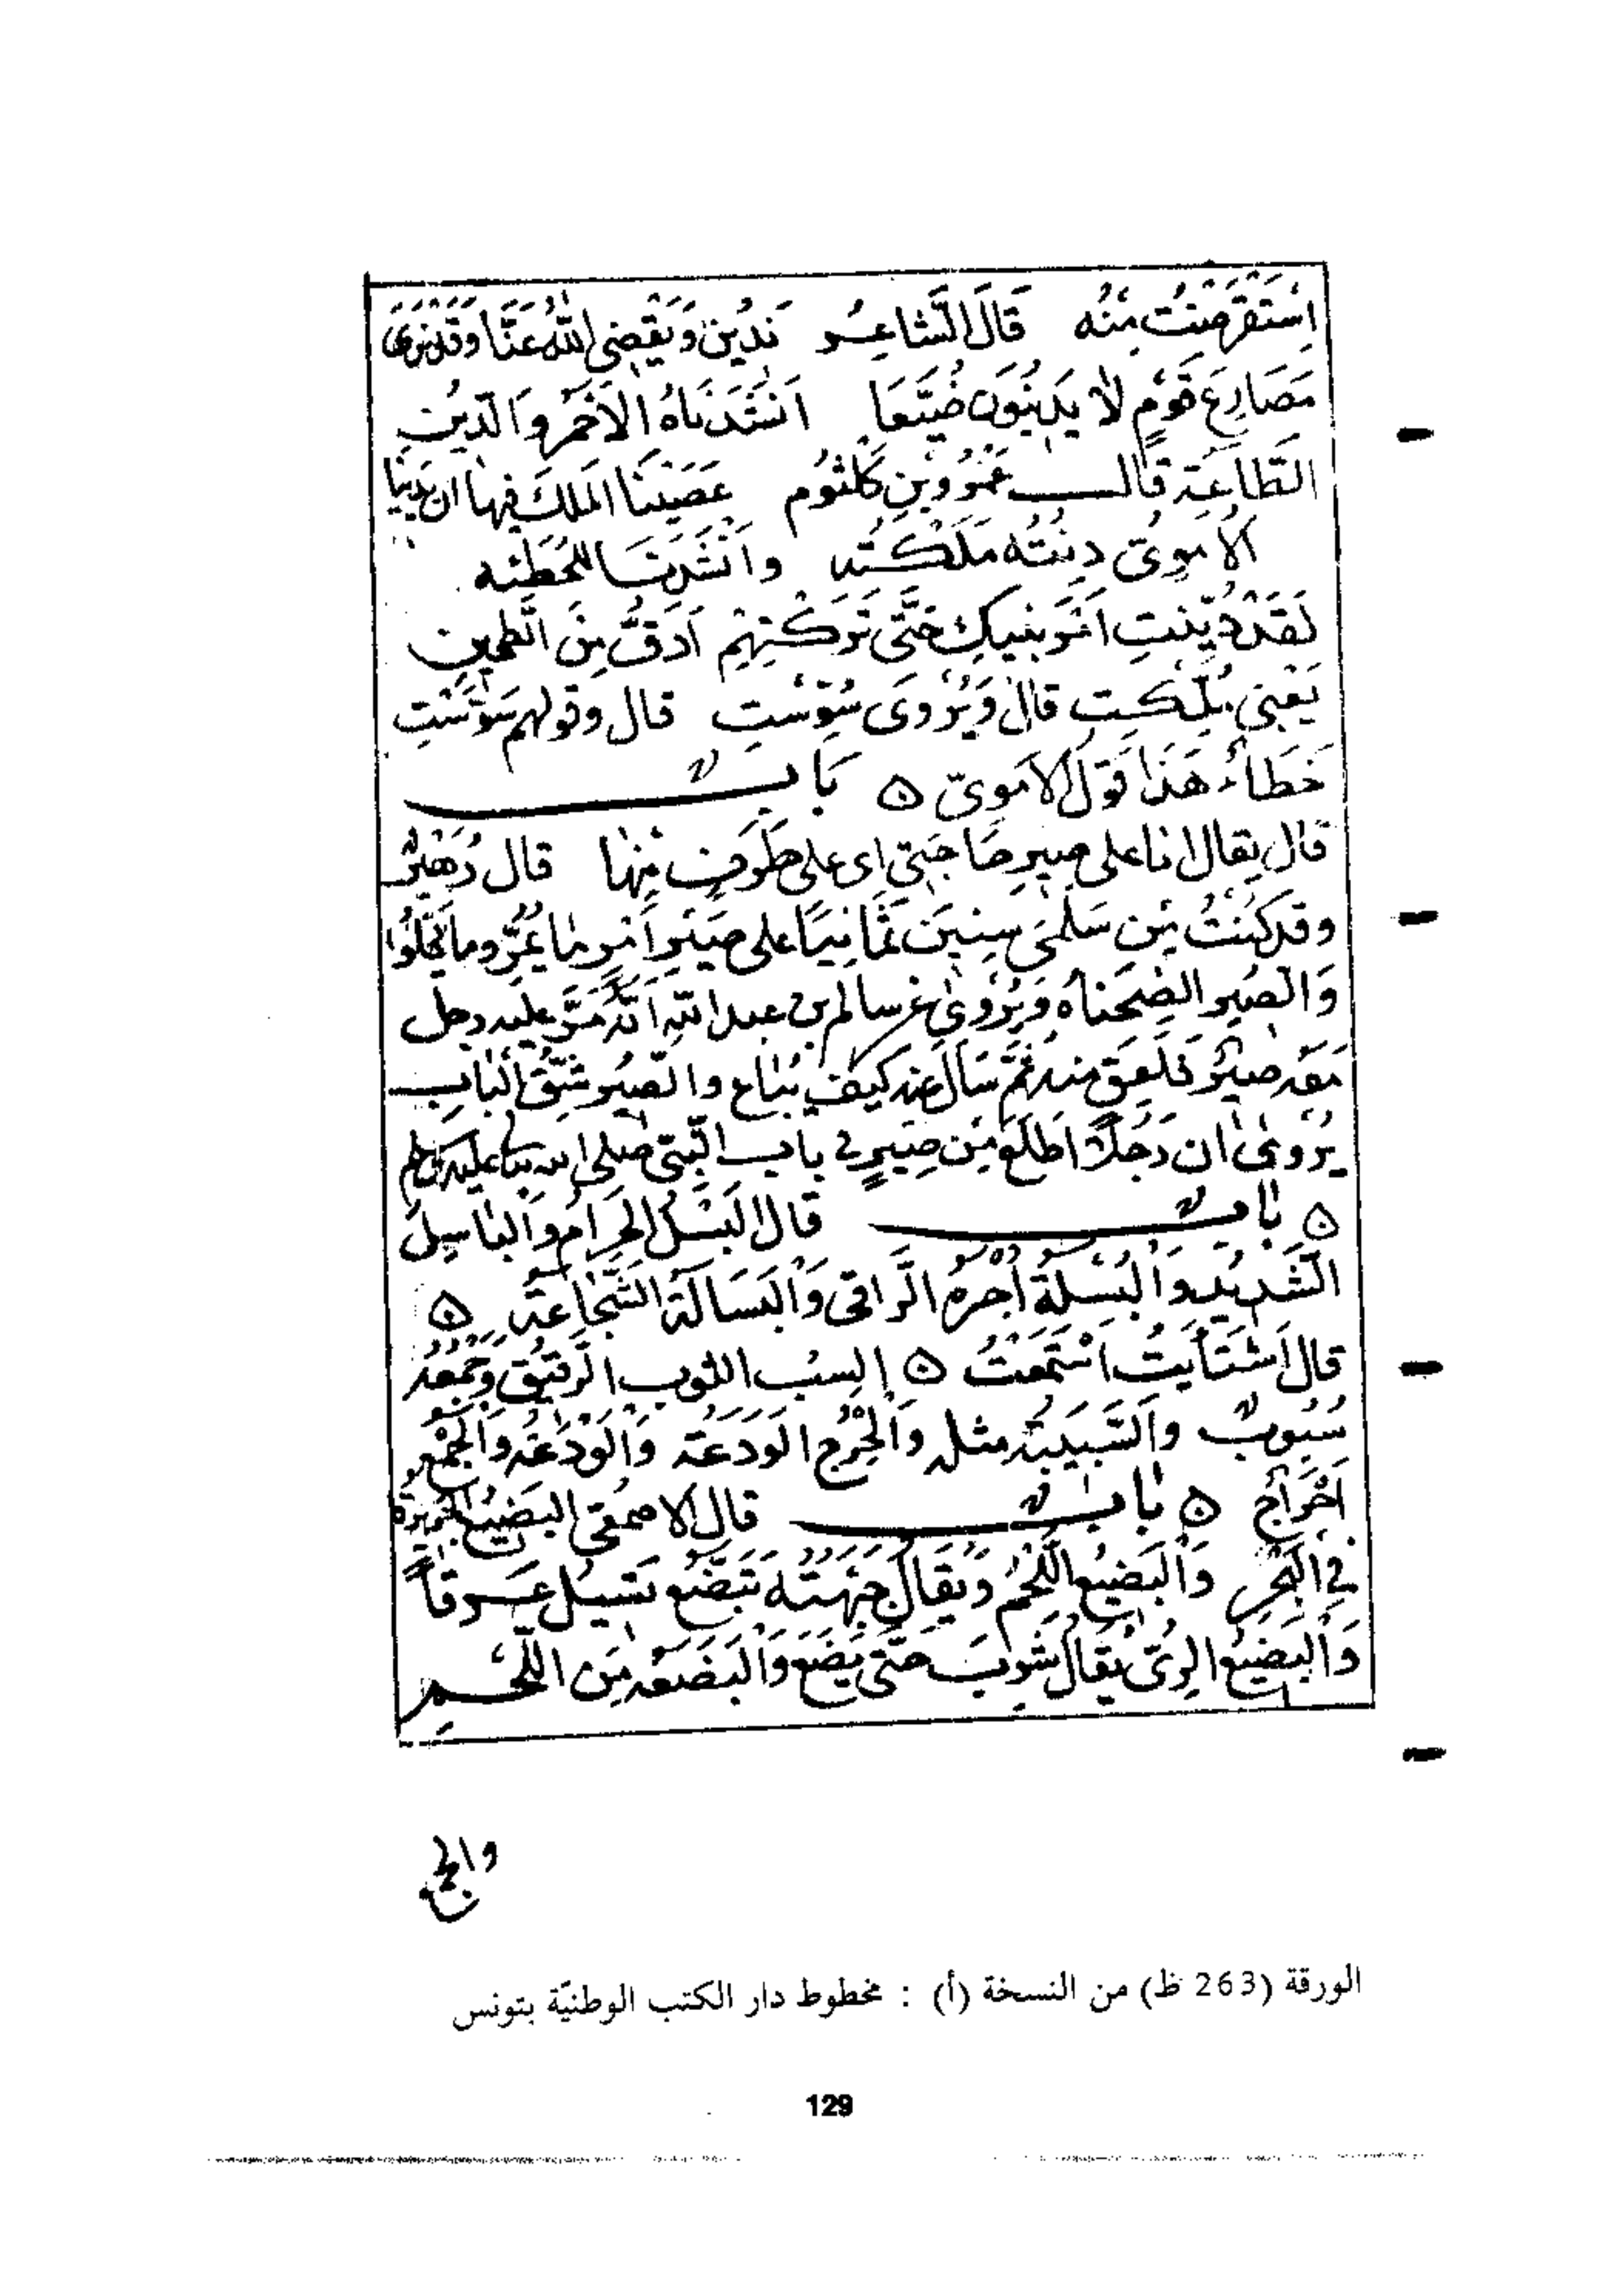 اِسْتَقْرَضْتُ مِنْه قَالَ الشَّاعِر نَدِينُ وَيَقْضِي اللهُ عَنَّا وَقَدْ نَرَى
مَصَارِعَ قَوْمٍ لَا يَدِينُونَ ضُيَّعَا اَنْشَدَنَاهُ الْاَحْمَرُ وَالدِّينُ
الطَّاعَة قال عَمْرُو بن كُلْثُوم عَصَيْنَا المَلْكَ فيها ان نَدِينَا
الاموىّ دِنْتُه مَلَكْتُه وانْشَدَنَا للحُطَيْئه
لَقَدْ دُيِّنْتِ اَمْرَ بَنِيكِ حَتَّى تَرَكْتِهِمْ اَدَقَّ مِنَ الطَّحِينِ
يَعْنِي مُلِّكْتِ قال وَيُرْوَى سُوِّسْتِ قال وقولهم سَوَّسْتِ
خَطَاءٌ هَذَا قَولُ الاَمَوىّ ۞ بَابٌ
قال يقال انا على صِيرِ حَاجَتِي اى على طَرَفٍ مِنْها قال زُهَيْرٌ
وقد كُنْتُ مِن سَلْمَى سِنِينَ ثَمَانِيًا على صِيرِ اَمْرٍ ما يُمِرُّ وما يَحْلُوا
وَالصِّير الصِّحْنَاه وَيُرْوىٰ عن سالم بن عبد الله اَنَّه مَرَّ عليه رجل
مَعَه صِيرٌ فَلَعِقَ منه ثُمَّ سَأل عنه كيف يُبَاع والصِّير شَقُّ الْبَاب
يُرْوىٰ ان رَجُلاً اطَّلَعَ مِن صِيرٍ في باب النبى صلى الله عليه وسلم
۞ بَابٌ قال الْبَسْلُ الحَرَامُ والْبَاسِلُ
الشَّدِيد وَالْبُسْلَةُ اُجْرَةُ الرَّاقِى وَالْبَسَالَةُ الشَّجَاعَة ۞
قال اشْتَأَيْتُ اسْتَمَعْتُ ۞ السِّبُّ الثوب الرَّقيق وَجَمْعُه
سُبُوبٌ والسَّبِيبَة مثله وَالْحِرْجُ الوَدَعَة وَالْوَدْعَة وَالْجَمْع
اَحْرَاج ۞ بَابٌ قال الاصمَعِي البَضِيعُ الجَزِيرَة
فِي الْبَحْرِ وَالْبَضِيعُ اللَّحْمُ وَيُقَال جَبْهَتُه تَبَضَّعُ تَسِيلُ عَرَقاً
وَالْبَضِيعُ الرِّىّ يُقَال شَرِبَ حَتَّى بَضَعَ وَالْبَضْعَة مِنَ اللَّحْمِ
الورقة (263 ظ) من النسخة (أ) : مخطوط دار الكتب الوطنيّة بتونس
129